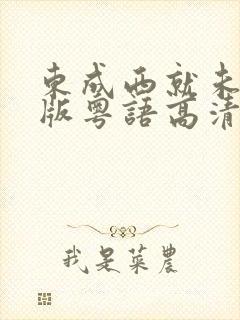 東成西就未
版粵語高清
我是菜農